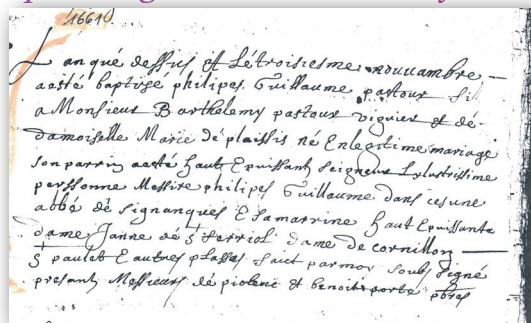 1661
L an qué dessus et Létroisiesme nouuambre —
aesté baptizé philipes Guillaume pastour fil
a Monsieur Barthelemy pastour viguier et dé
damoiselle Marie dé plaissis né En legitime mariage
son parrin aesté haut Epuissant seigneur Lylustrissime
perssonne Messire philipes Guillaume dans cesune
abbé dé signanques E samarrine haut Epuissante
dame Janne dé st ferriol dame de cornillon —
st paulet E autres plasses fait par moy soubs signé
presant Messieurs dé piolenc et benoit porte pbres